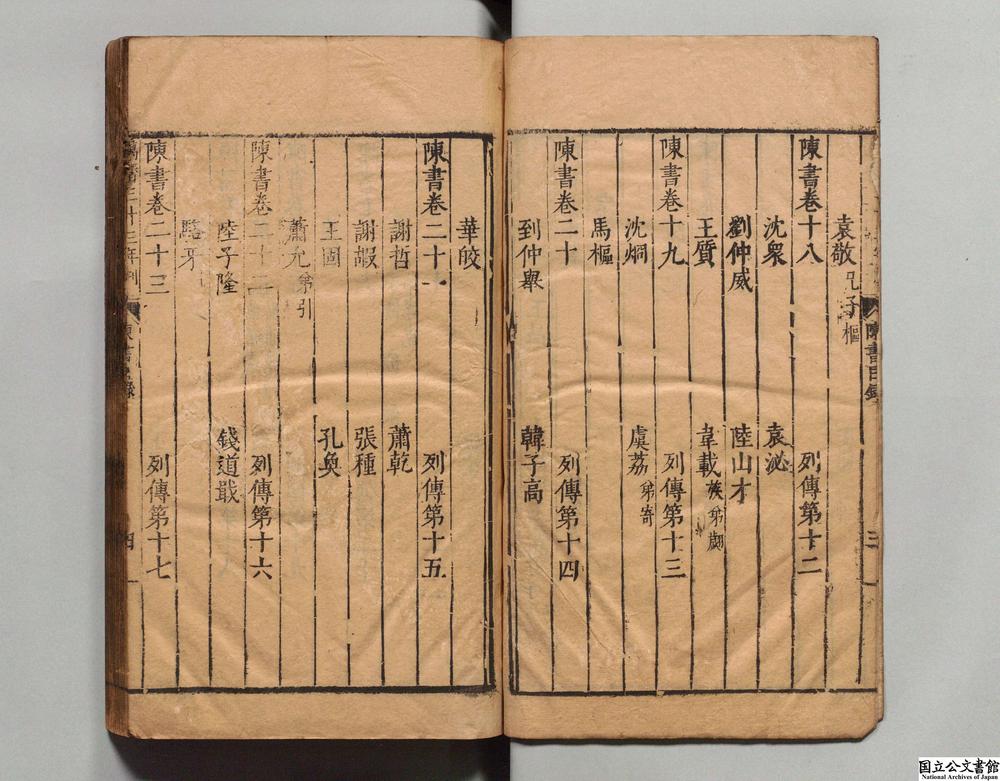 陳書目錄
三
袁敬 兄子樞
陳書卷十八 列傳第十二
沈衆 袁泌
劉仲威 陸山才
王質 韋載 族弟翽
陳書卷十九 列傳第十三
沈烱 虞荔 弟寄
馬樞
陳書卷二十 列傳第十四
到仲舉 韓子高
華皎
陳書卷二十一 列傳第十五
謝哲 蕭乾
謝嘏 張種
王固 孔奐
蕭允 弟引
陳書卷二十二 列傳第十六
陸子隆 錢道戢
駱牙
陳書卷二十三 列傳第十七
萬曆三十三年刊
陳書目錄
四
国立公文書館
National Archives of Japan